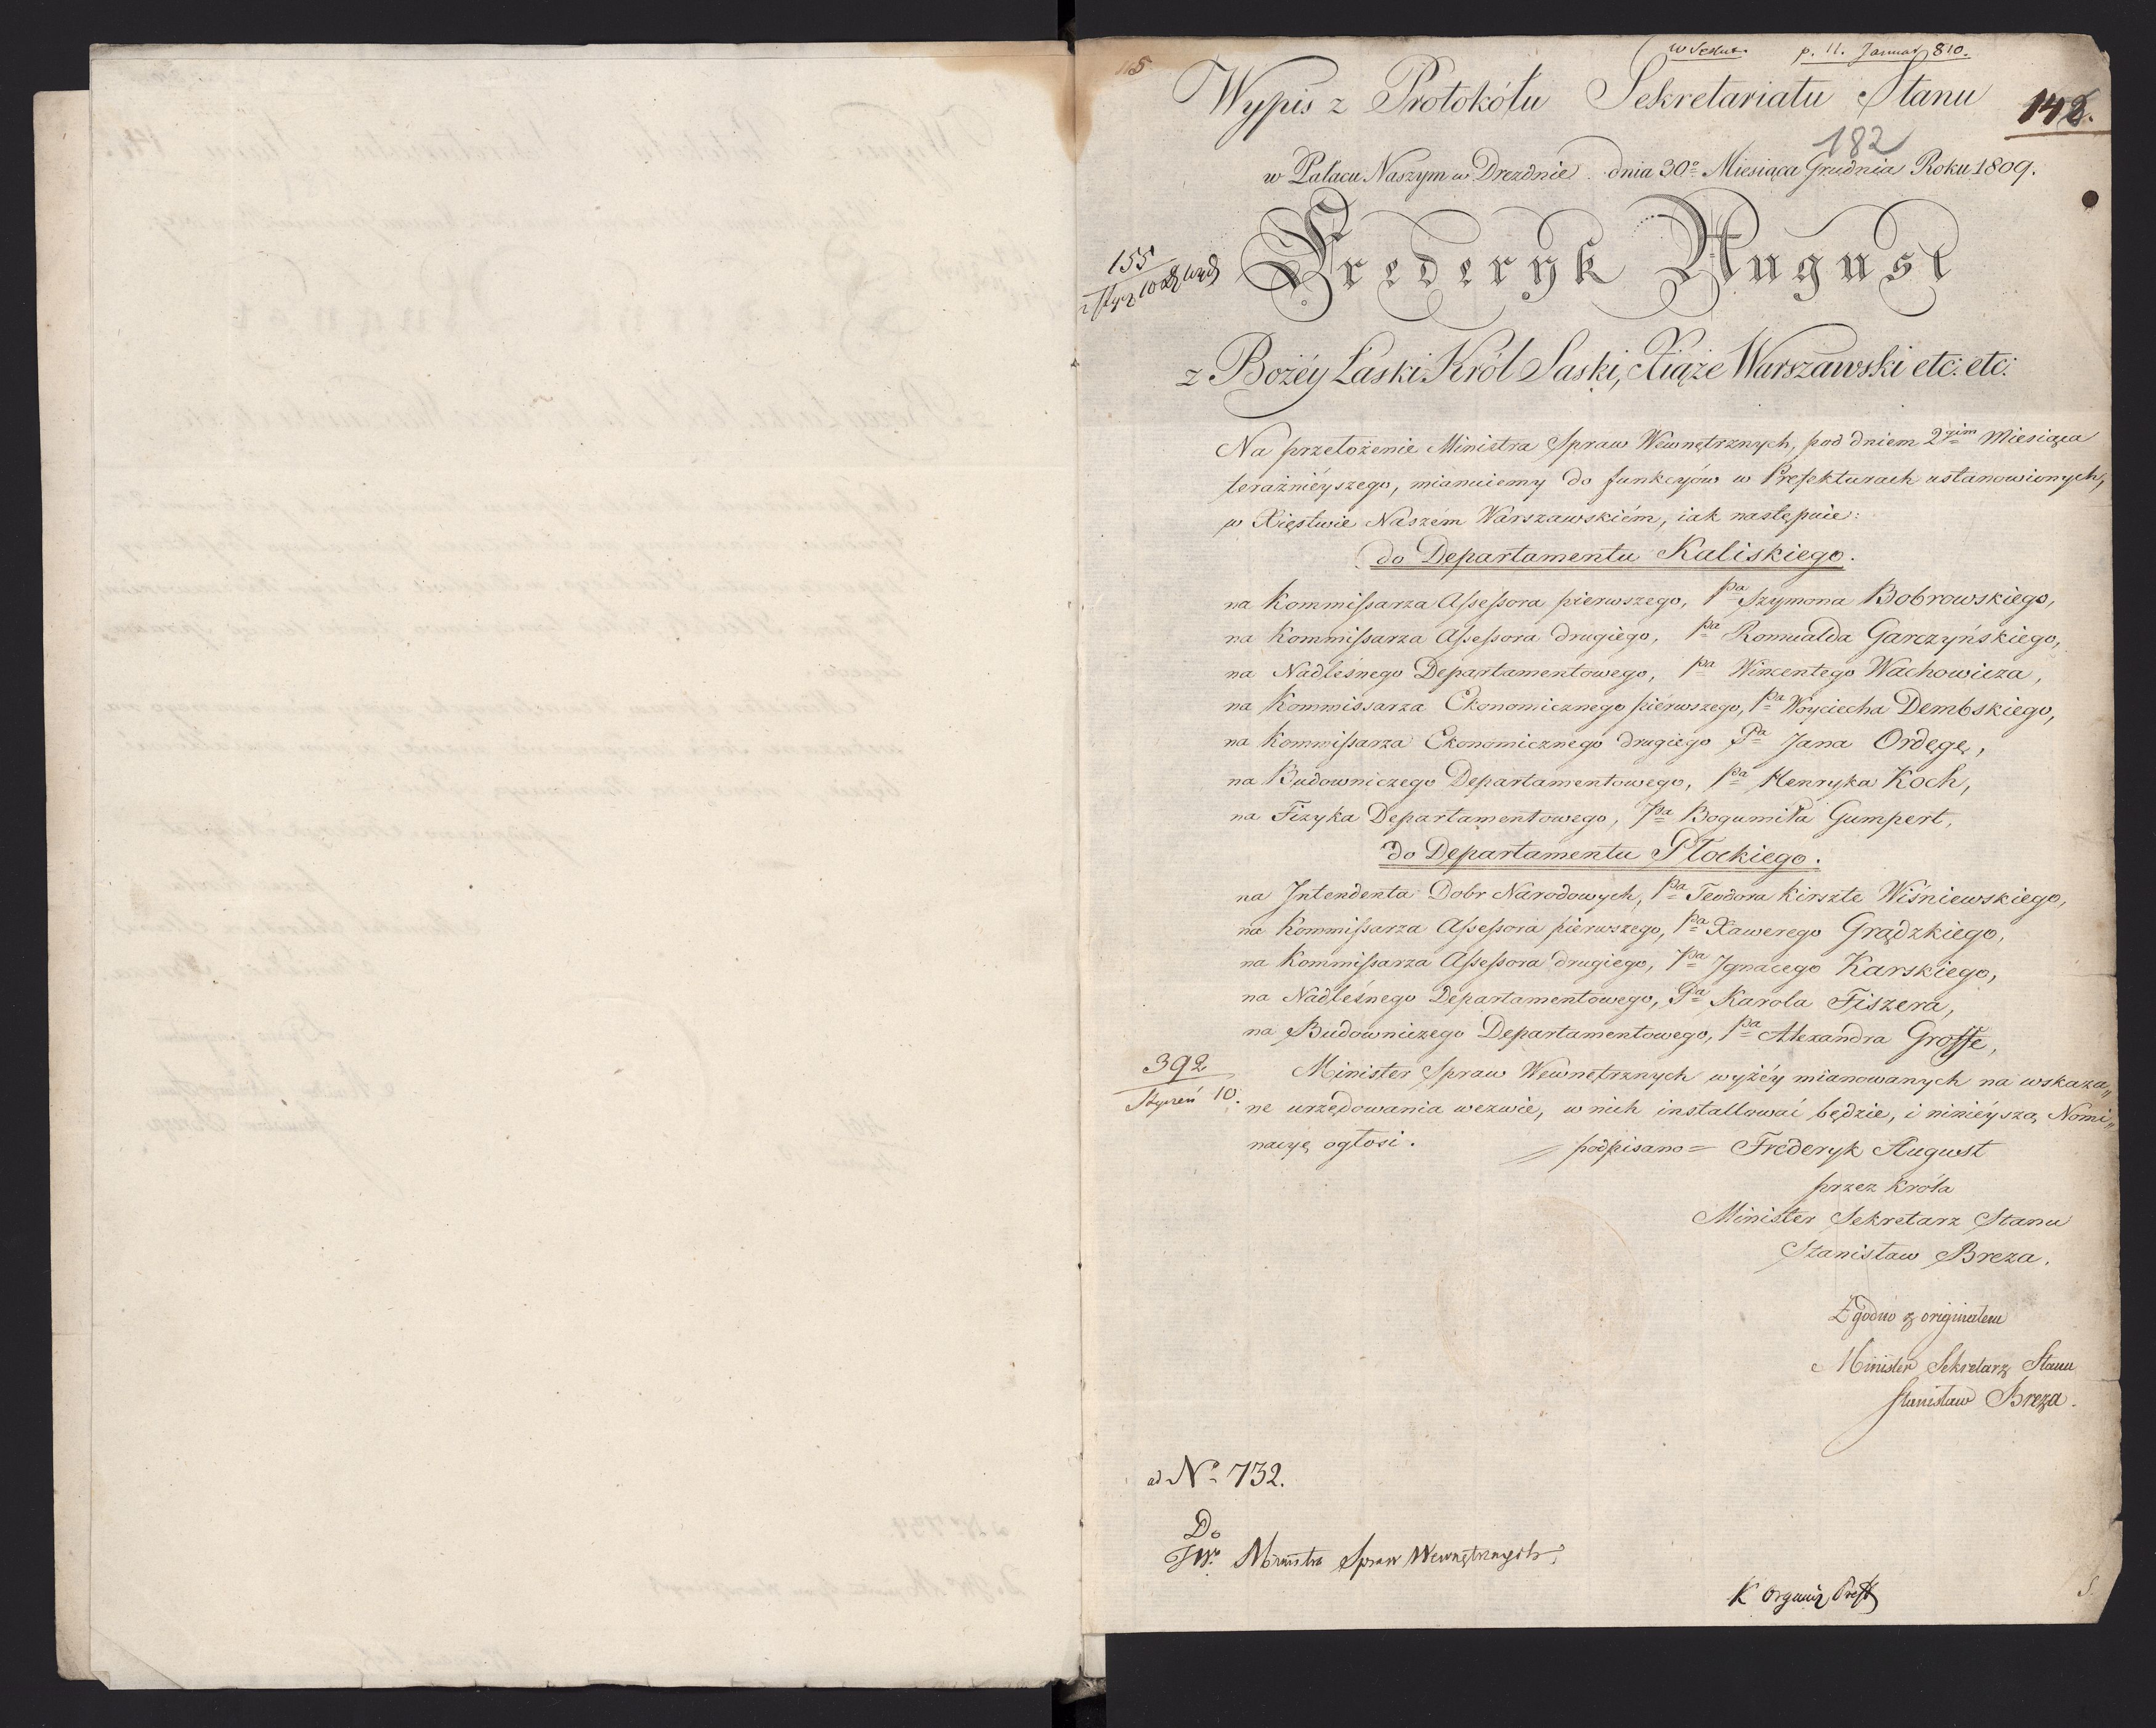 p. 11. Januar 810.
Wypis z Protokółu Sekretariatu Stanu
148.
182
w Pałacu Naszym w Dreznie dnia 30º Miesiąca Grudnia Roku 1809.
155
Frederyk August
z Bożéy Łaski Król Saski, Xiąże Warszawski etc: etc:
Na przełożenie Ministra Spraw Wewnętrznych, pod dniem 2gim Miesiąca
teraźnieyszego, mianuiemy do funkcyów w Prefekturach ustanowionych,
w Xięstwie Naszém Warszawskiém, iak następuie:
do Departamentu Kaliskiego.
na Kommissarza Assessora pierwszego, Pa Szymona Bobrowskiego,
na Kommissarza Assessora drugiego, Pa Romualda Garczyńskiego,
na Nadleśnego Departamentowego, Pa Wincentego Wachowicza,
na Kommissarza Ekonomicznego pierwszego, Pa Woyciecha Dembskiego,
na Kommissarza Ekonomicznego drugiego Pa Jana Ordęgę,
na Budowniczego Departamentowego, Pa Henryka Koch,
na Fizyka Departamentowego, Pa Bogumiła Gumpert,
do Departamentu Płockiego.
na Intendenta Dobr Narodowych, Pa Teodora Kirszte Wiśniewskiego,
na Kommissarza Assessora pierwszego, Pa Xawerego Grądzkiego,
na Kommissarza Assessora drugiego, Pa Ignacego Karskiego,
na Nadleśnego Departamentowego, Pa Karola Fiszera,
na Budowniczego Departamentowego, Pa Alexandra Grosse,
392
Styczeń 10.
Minister Spraw Wewnętrznych wyżéy mianowanych na wskaza„
ne urzędowania wezwie, w nich installować będzie, i ninieyszą Nomi„
nacyę ogłosi. = podpisano = Frederyk August
przez Króla
Minister Sekretarz Stanu
Stanisław Breza.
Zgodno z originałem
Minister Sekretarz Stanu
Stanisław Breza.
ad Nº 732.
Do
JWº Ministra Spraw Wewnętrznych
K Organiz Pref